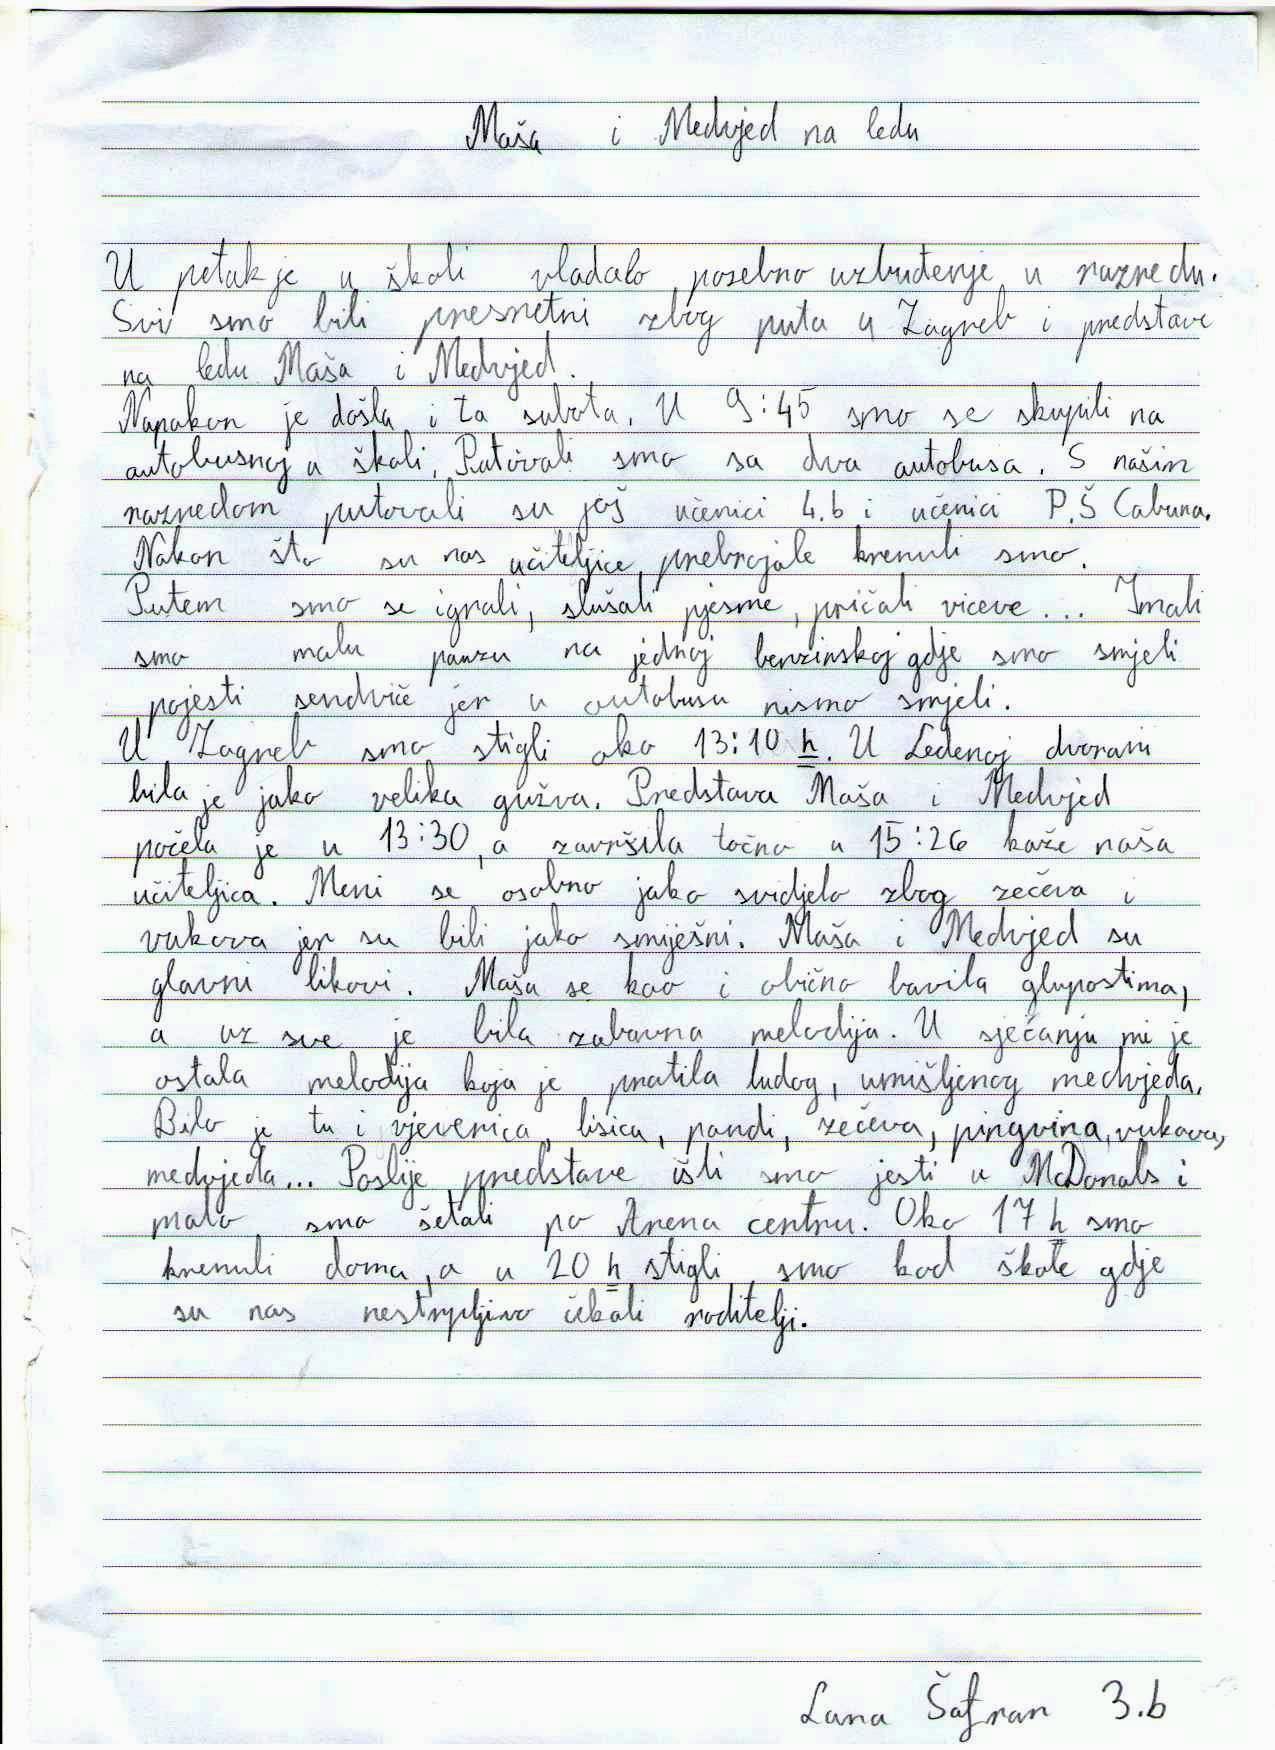 Maša i Medvjed na ledu
U petak je u školi vladalo posebno uzbuđenje u razredu.
Svi smo bili presretni zbog puta u Zagreb i predstave
na ledu Maša i Medvjed.
Napokon je došla i ta subota. U 9:45 smo se skupili na
autobusnoj u školi. Putovali smo sa dva autobusa. S našim
razredom putovali su još učenici 4.b i učenici P.Š Cabuna.
Nakon što su nas učiteljice prebrojale krenuli smo.
Putem smo se igrali, slušali pjesme, pričali viceve... Imali
smo malu pauzu na jednoj benzinskoj gdje smo smjeli
pojesti sendviče jer u autobusu nismo smjeli.
U Zagreb smo stigli oko 13:10 h. U Ledenoj dvorani
bila je jako velika gužva. Predstava Maša i Medvjed
počela je u 13:30, a završila točno u 15:26 kaže naša
učiteljica. Meni se osobno jako svidjelo zbog zečeva i
vukova jer su bili jako smiješni. Maša i Medvjed su
glavni likovi. Maša se kao i obično bavila glupostima,
a uz sve je bila zabavna melodija. U sjećanju mi je
ostala melodija koja je pratila ludog, umišljenog medvjeda.
Bilo je tu i vjeverica, lisica, pandi, zečeva, pingvina, vukova,
medvjeda... Poslije predstave išli smo jesti u McDonals i
malo smo šetali po Arena centru. Oko 17 h smo
krenuli doma, a u 20 h stigli smo kod škole gdje
su nas nestrpljivo čekali roditelji.
Lana Šafran 3.b